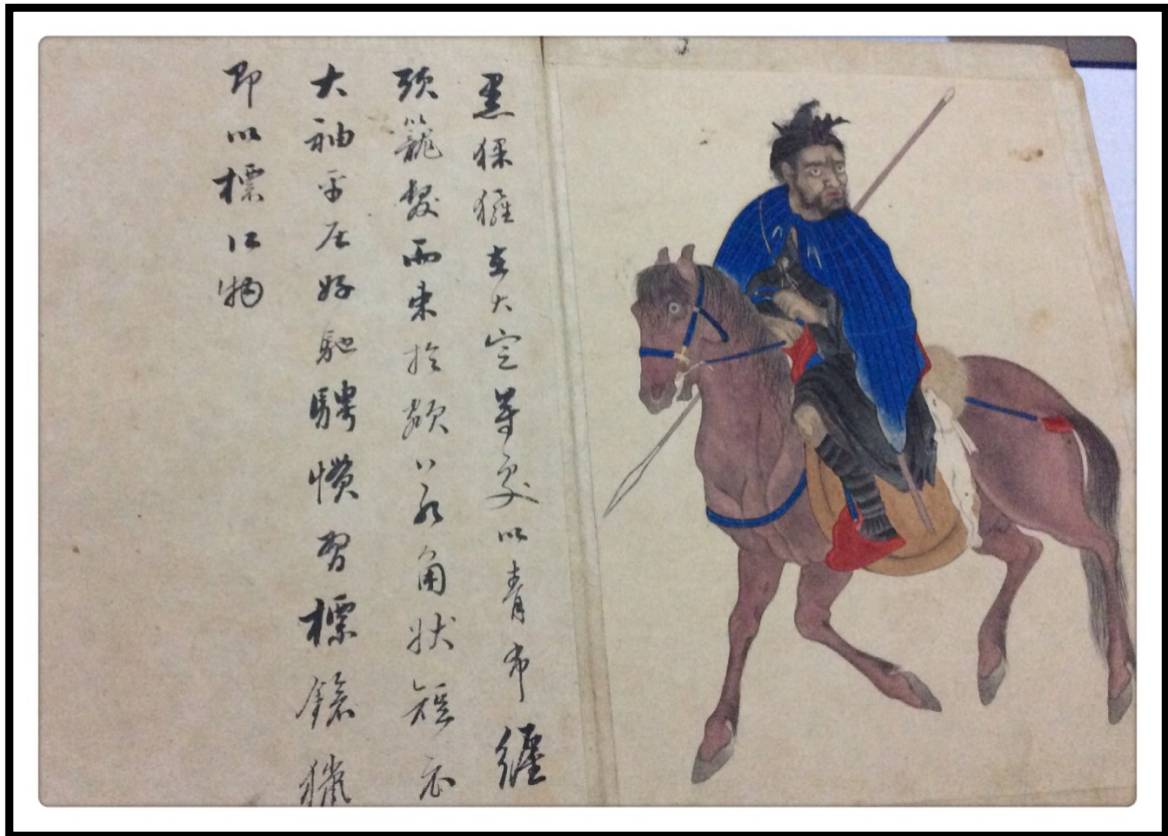 黑猓玀在大定等處以青布纏
頭籠髮而束於額若角狀短衣
大袖平居好馳騁慣習標鎗獵
即以標物